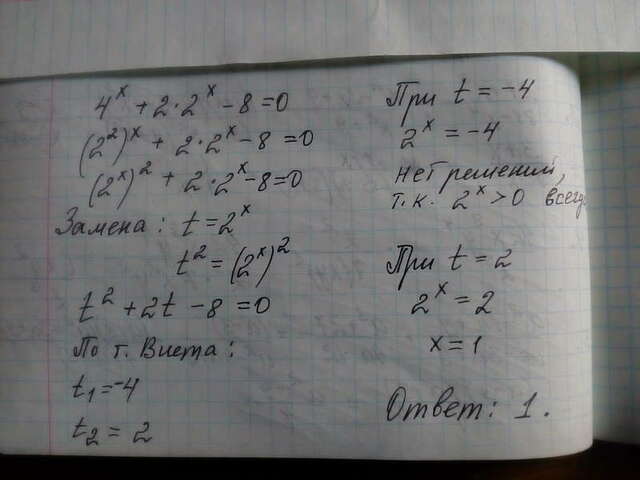 4^x + 2·2^x - 8 = 0
(2^2)^x + 2·2^x - 8 = 0
(2^x)^2 + 2·2^x - 8 = 0
Замена: t = 2^x
t^2 = (2^x)^2
t^2 + 2t - 8 = 0
По т. Виета:
t₁ = -4
t₂ = 2
При t = -4
2^x = -4
нет решений,
т.к. 2^x > 0 всегда
При t = 2
2^x = 2
x = 1
Ответ: 1.